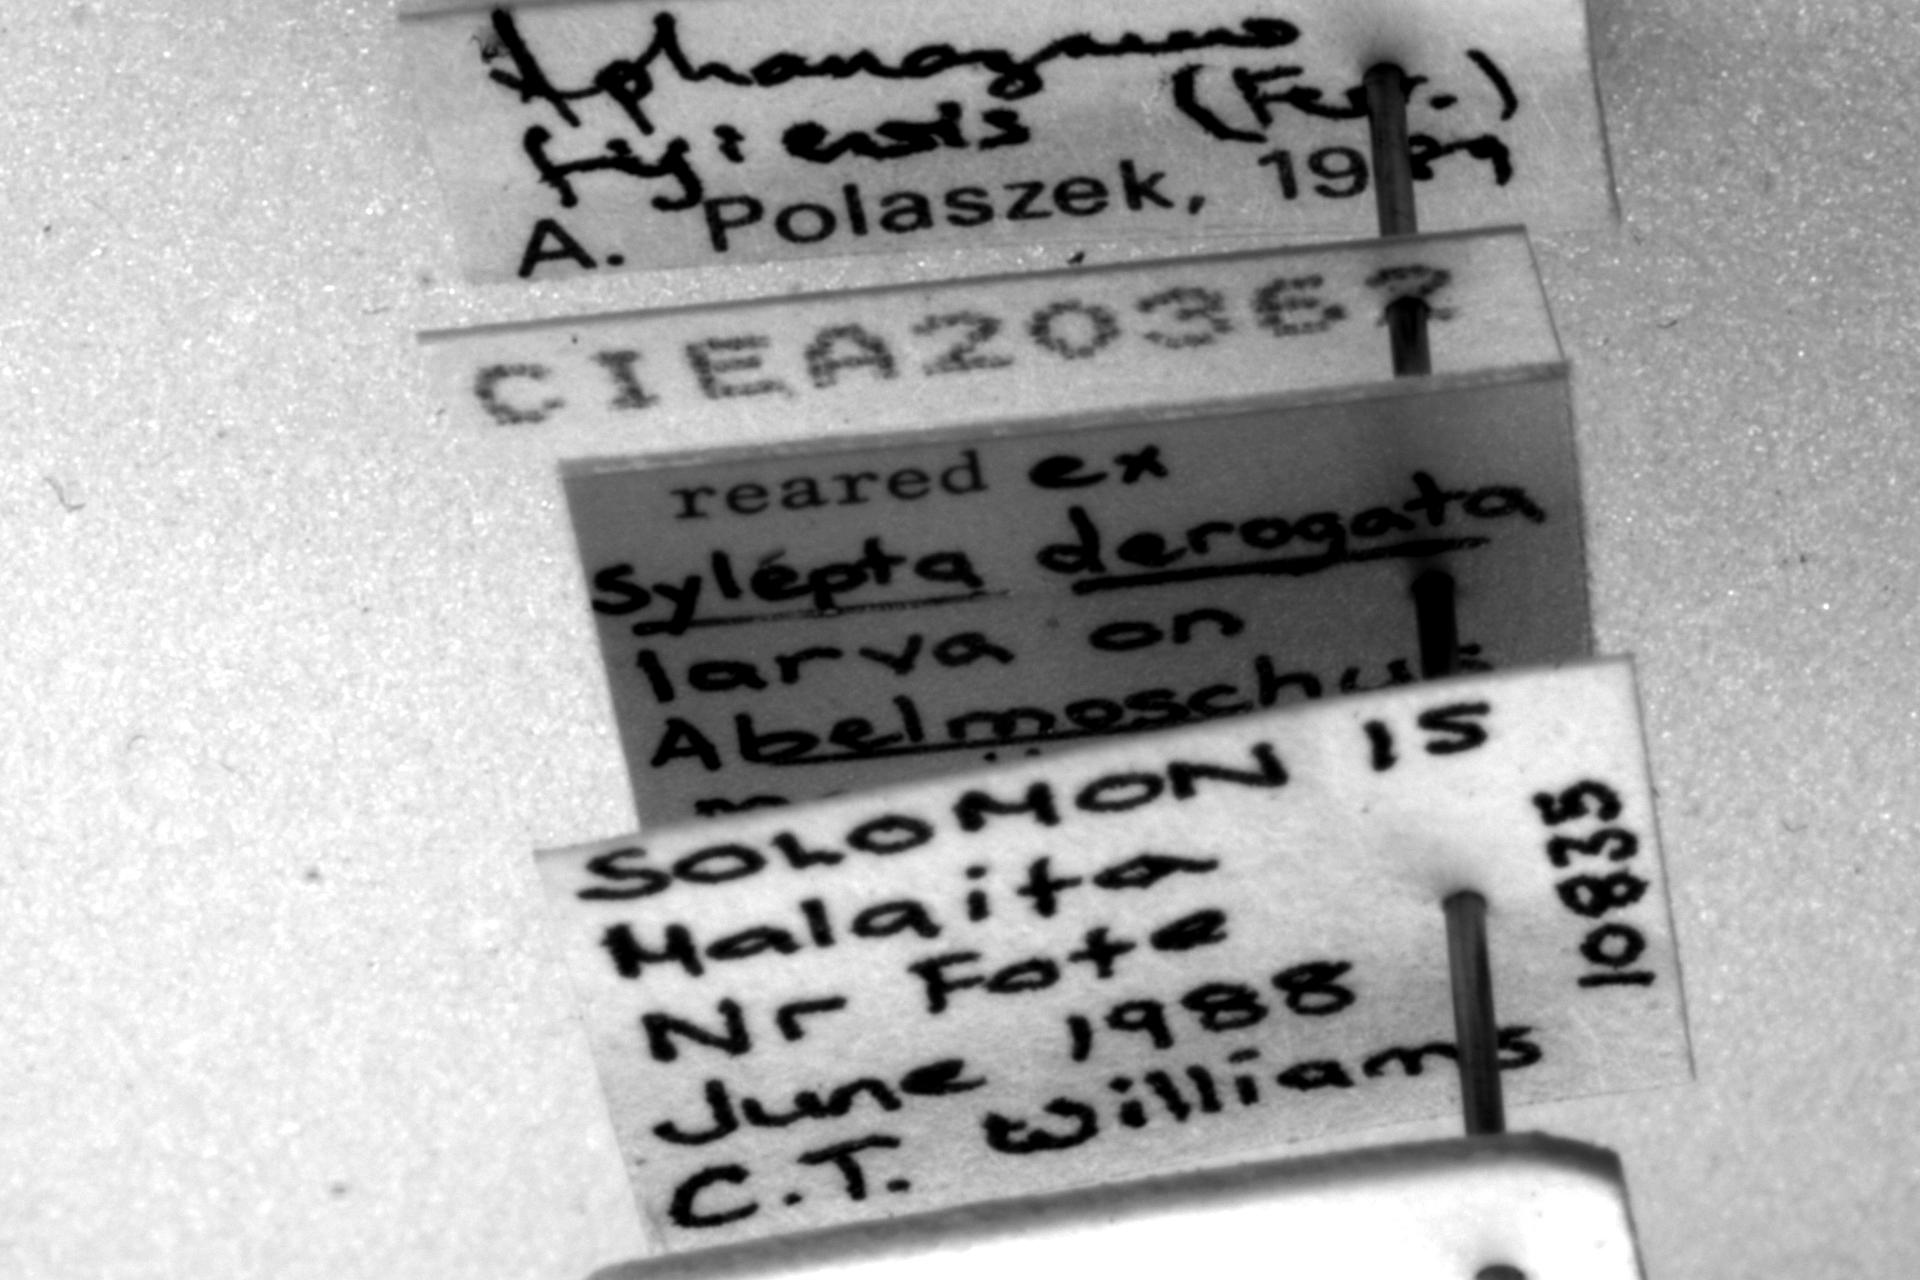 Aphanogmus
fijiensis (Ferr.)
A. Polaszek, 1989
CIEA20367
reared ex
Sylepta derogata
larva on
Abelmoschus
SOLOMON IS
Malaita
Nr Fote
June 1988
C.T. Williams
10835